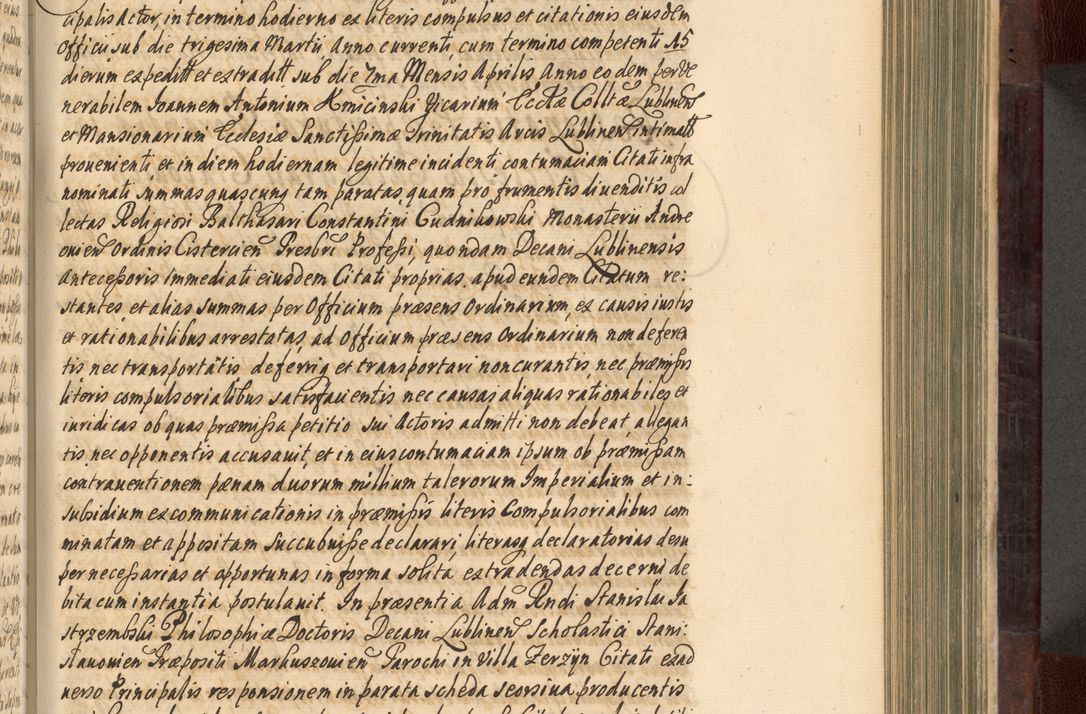 cipalis Actor, in termino hodierno ex literis compulsus et citationis eiusdem
Officii sub die trigesima Martii Anno currenti cum termino competenti 15
dierum expeditt et extraditt sub die 7ma Mensis Aprilis Anno eodem per Ve
nerabilem Joannem Antonium Kmicinski Vicarium Ecctæ Colltæ Lublinen
et Mansionarium Ecclesiæ Sanctissimæ Trinitatis Arcis Lublinen intimatt
provenienti et in diem hodiernam legitime incidenti contumaciam Citati infra
nominati summas quascunq tam paratas, quam pro frumentis divenditis col
lectas Religiosi Balthasari Constantini Cudnikowski Monasterii Andre
ovien Ordinis Cistercien Presbri Professi, quondam Decani Lublinensis
Antecessoris immediati eiusdem Citati proprias apud eundem Citatum re:
stantes et alias summas per Officium præsens Ordinarium, ex causis iustis
et rationabilibus arrestatas, ad Officium præsens Ordinarium non deferen
tis nec transportantis deferriq et transportari non curantis, nec præmissis
literis compulsorialibus satisfacientis nec causas aliquas rationabiles et
iuridicas ob quas præmissa petitio sui Actoris admitti non debeat allegan
tis, nec opponentis accusavit, et in eius contumaciam ipsum ob præmissam
contraventionem pænam duorum millium talerorum Imperialium et in:
subsidium excommunicationis in præmissis literis Compulsorialibus com
minatam et appositam succubuisse declarari, literasq declaratorias desu
per necessarias et opportunas in forma solita extradendas decerni de
bita cum instantia postulavit. In præsentia Adm Rndi Stanislai Ja
strzembski Philosophiæ Doctoris Decani Lublinen Scholastici Stani:
slavovien Præpositi Markuszovien Parochi in Villa Zerzyn Citati exad
verso Principalis responsionem in parata scheda seorsiva producentis